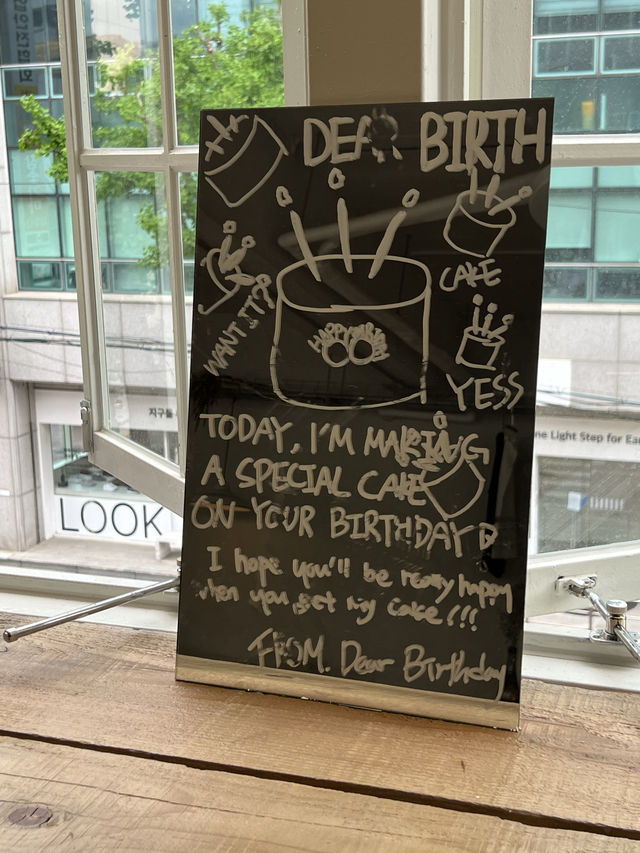 DEAR BIRTH
CAKE
WANT IT?
YESS
TODAY, I'M MAKING
A SPECIAL CAKE
ON YOUR BIRTHDAY
I hope you'll be really happy
when you get my cake!!!
FROM. Dear Birthday
LOOK
지구를
ne Light Step for Ea